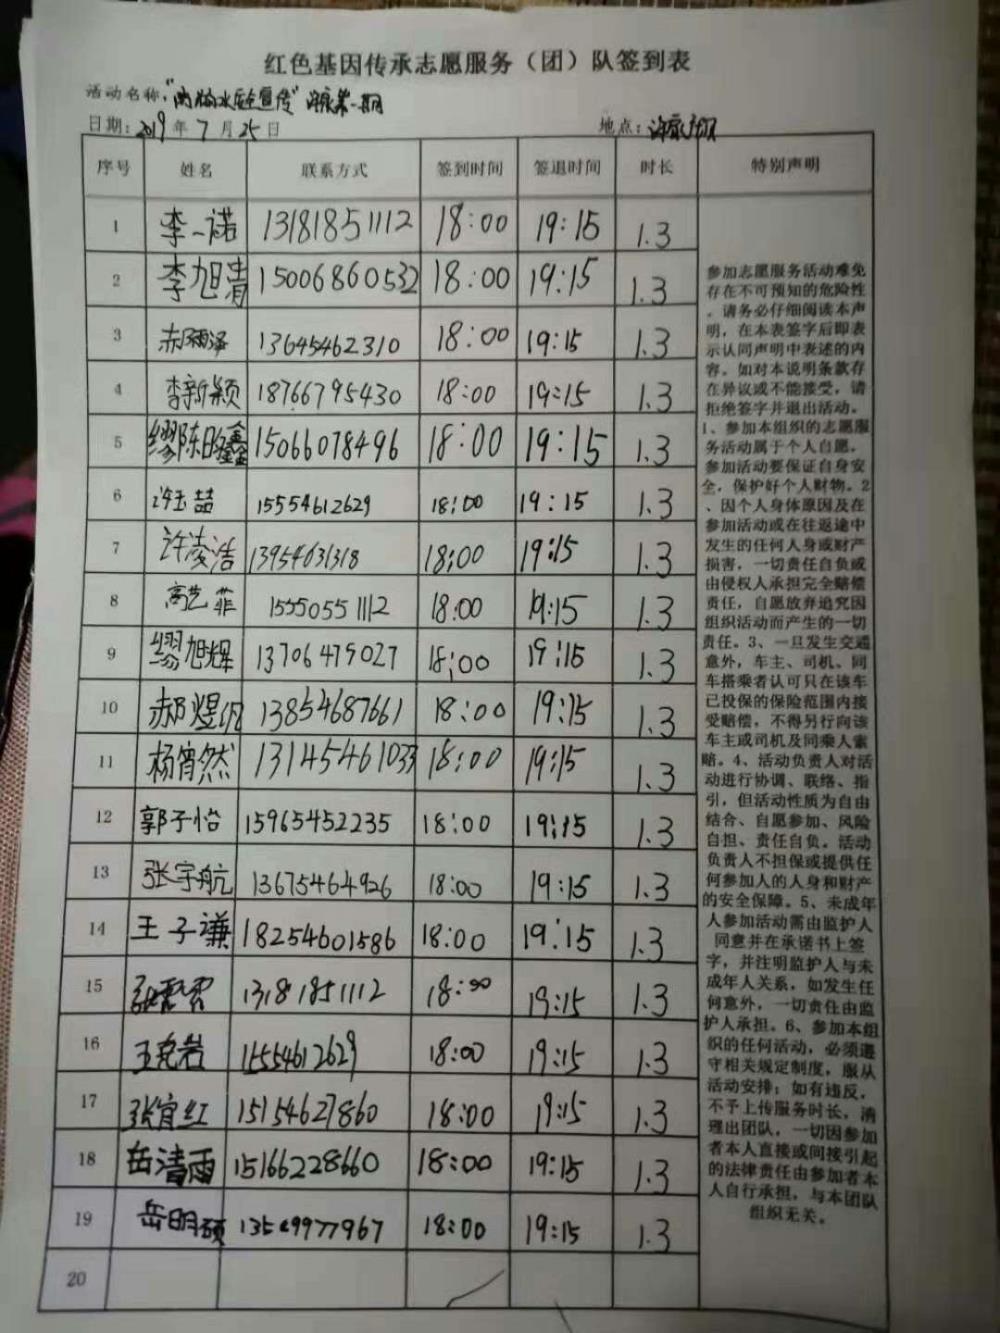 红色基因传承志愿服务（团）队签到表
活动名称："防溺水安全宣传"
日期：2019年7月25日 地点：
序号 姓名 联系方式 签到时间 签退时间 时长 特别声明
1 李一诺 13181851112 18:00 19:15 1.3
2 李旭清 15006860532 18:00 19:15 1.3
3 郝雨泽 13645462310 18:00 19:15 1.3
4 李新颖 18766795430 18:00 19:15 1.3
5 缪陈昀鑫 15066078496 18:00 19:15 1.3
6 许玉喆 15554612629 18:00 19:15 1.3
7 许凌浩 13954631318 18:00 19:15 1.3
8 高艺菲 15550551112 18:00 19:15 1.3
9 缪旭辉 13706479027 18:00 19:15 1.3
10 郝煜帆 13854687661 18:00 19:15 1.3
11 杨宵然 13145461033 18:00 19:15 1.3
12 郭子怡 15965452235 18:00 19:15 1.3
13 张宇航 13675464926 18:00 19:15 1.3
14 王子谦 18254601586 18:00 19:15 1.3
15 13181851112 18:00 19:15 1.3
16 15554612629 18:00 19:15 1.3
17 张宜红 15154627860 18:00 19:15 1.3
18 岳清雨 15166228660 18:00 19:15 1.3
19 岳明硕 13549977967 18:00 19:15 1.3
20
参加志愿服务活动难免
存在不可预知的危险性
。请务必仔细阅读本声
明，在本表签字后即表
示认同声明中表述的内
容。如对本说明条款存
在异议或不能接受，请
拒绝签字并退出活动。
1、参加本组织的志愿服
务活动属于个人自愿。
参加活动要保证自身安
全，保护好个人财物。2
、因个人身体原因及在
参加活动或在往返途中
发生的任何人身或财产
损害，一切责任自负或
由侵权人承担完全赔偿
责任，自愿放弃追究因
组织活动而产生的一切
责任。3、一旦发生交通
意外，车主、司机、同
车搭乘者认可只在该车
已投保的保险范围内接
受赔偿，不得另行向该
车主或司机及同乘人索
赔。4、活动负责人对活
动进行协调、联络、指
引，但活动性质为自由
结合、自愿参加、风险
自担、责任自负。活动
负责人不担保或提供任
何参加人的人身和财产
的安全保障。5、未成年
人参加活动需由监护人
同意并在承诺书上签
字，并注明监护人与未
成年人关系，如发生任
何意外，一切责任由监
护人承担。6、参加本组
织的任何活动，必须遵
守相关规定制度，服从
活动安排；如有违反，
不予上传服务时长，清
理出团队，一切因参加
者本人直接或间接引起
的法律责任由参加者本
人自行承担，与本团队
组织无关。